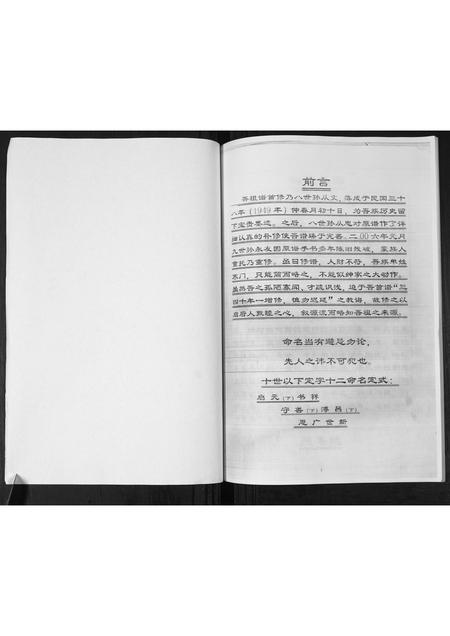 前言
吾祖谱首修乃八世孙从文，落成于民国三十
八年（1949年）仲春月初十日，为吾族历史留
下宝贵墨迹。之后，八世孙从思对原谱作了详
细认真的补修使吾谱臻于完善。二00六年元月
九世孙永友因原谱手书多年陈旧残破，家族人
重托乃重修。虽曰修谱，人财不符，吾族单姓
寒门，只能简而略之，不能似绅家之大动作。
虽然吾之孤陋寡闻、才疏识浅，迫于吾首谱“三
四十年一增修，慎勿迟延”之教诲，故修之以
启后人敦睦之心，叙源流而略知吾祖之来源。
命名当有避忌勿论，
先人之讳不可犯也。
十世以下定字十二命名定式：
启元（下）书祥
守善（下）泽昌（下）
思广世新